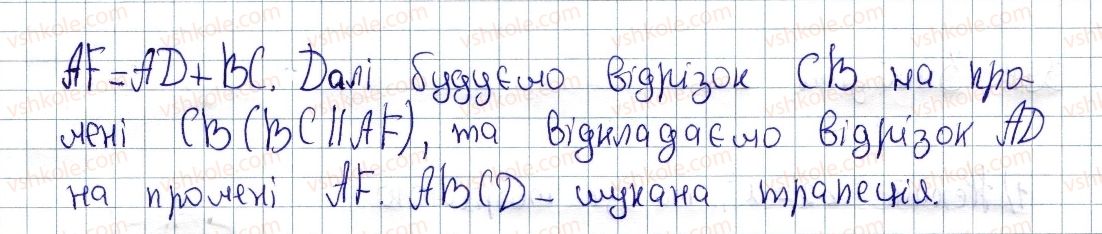 AF=AD+BC. Далі будуємо відрізок CB на про-
мені CB (BC||AF), та відкладаємо відрізок AD
на промені AF. ABCD - шукана трапеція.